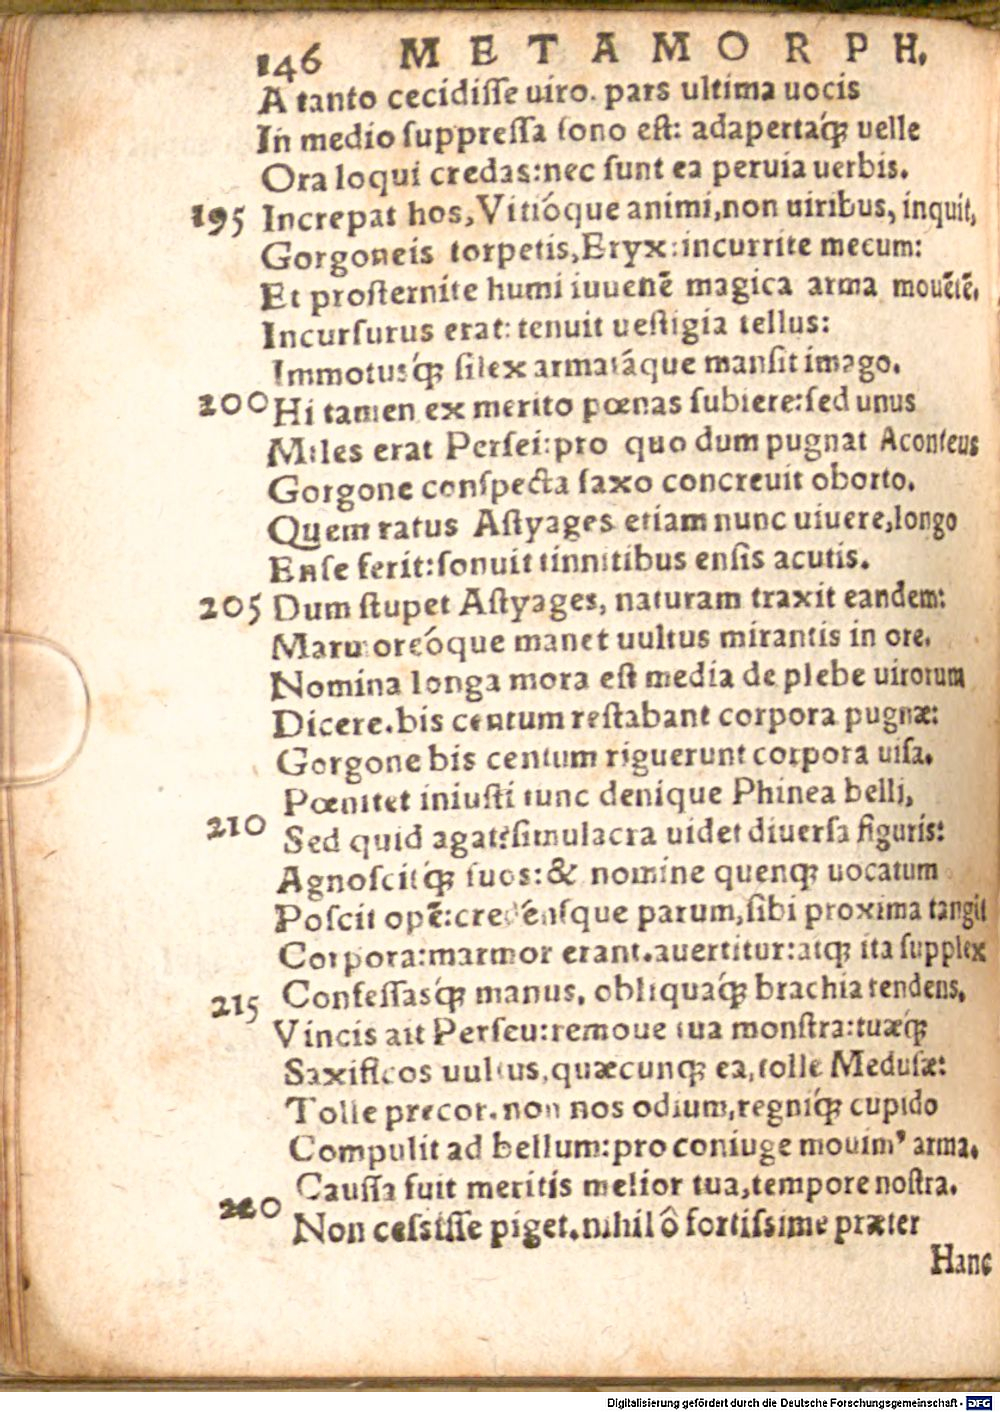 146 METAMORPH.
A tanto cecidisse uiro. pars ultima uocis
In medio suppressa sono est: adapertáq; uelle
Ora loqui credas: nec sunt ea peruia uerbis.
195 Increpat hos, Vitióque animi, non uiribus, inquit,
Gorgoneis torpetis, Eryx: incurrite mecum:
Et prosternite humi iuuenē magica arma mouētē.
Incursurus erat: tenuit uestigia tellus:
Immotusq́; silex armatáque mansit imago.
200 Hi tamen ex merito pœnas subiere: sed unus
Miles erat Persei: pro quo dum pugnat Aconteus
Gorgone conspecta saxo concreuit oborto.
Quem ratus Astyages etiam nunc uiuere, longo
Ense ferit: sonuit tinnitibus ensis acutis.
205 Dum stupet Astyages, naturam traxit eandem:
Marmoreóque manet uultus mirantis in ore.
Nomina longa mora est media de plebe uirorum
Dicere. bis centum restabant corpora pugnæ:
Gorgone bis centum riguerunt corpora uisa.
Pœnitet iniusti tunc denique Phinea belli,
210 Sed quid agat? simulacra uidet diuersa figuris:
Agnoscitq́; suos: & nomine quenq; uocatum
Poscit opē: credénsque parum, sibi proxima tangit
Corpora: marmor erant. auertitur: atq; ita supplex
215 Confessasq́; manus, obliquáq; brachia tendens,
Vincis ait Perseu: remoue tua monstra: tuæq́;
Saxificos uultus, quæcunq; ea, tolle Medusæ:
Tolle precor. non nos odium, regniq́; cupido
Compulit ad bellum: pro coniuge mouim' arma.
Caussa fuit meritis melior tua, tempore nostra.
220 Non cessisse piget. nihil ô fortissime præter
Hanc
Digitalisierung gefördert durch die Deutsche Forschungsgemeinschaft - DFG